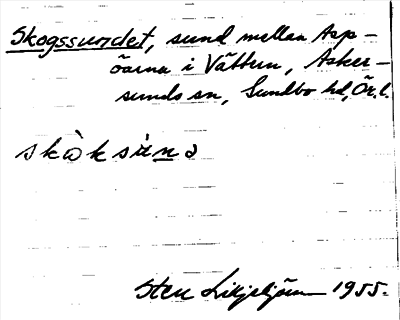 Skogssundet, sund mellan Asp-
öarna i Vättern, Asker-
sunds sn, Sundbo hd, Ör. l.
skòksùna
Sten Liljehjörn 1955.